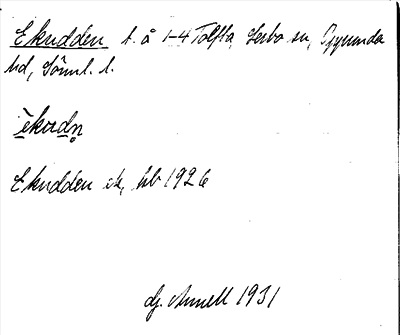 Ekudden t. å 1-4 Tolfta, Lerbo sn, Oppunda
hd, Sörml. l.
èkudn̥
Ekudden ek, hb 1926
Gj. Annell 1931